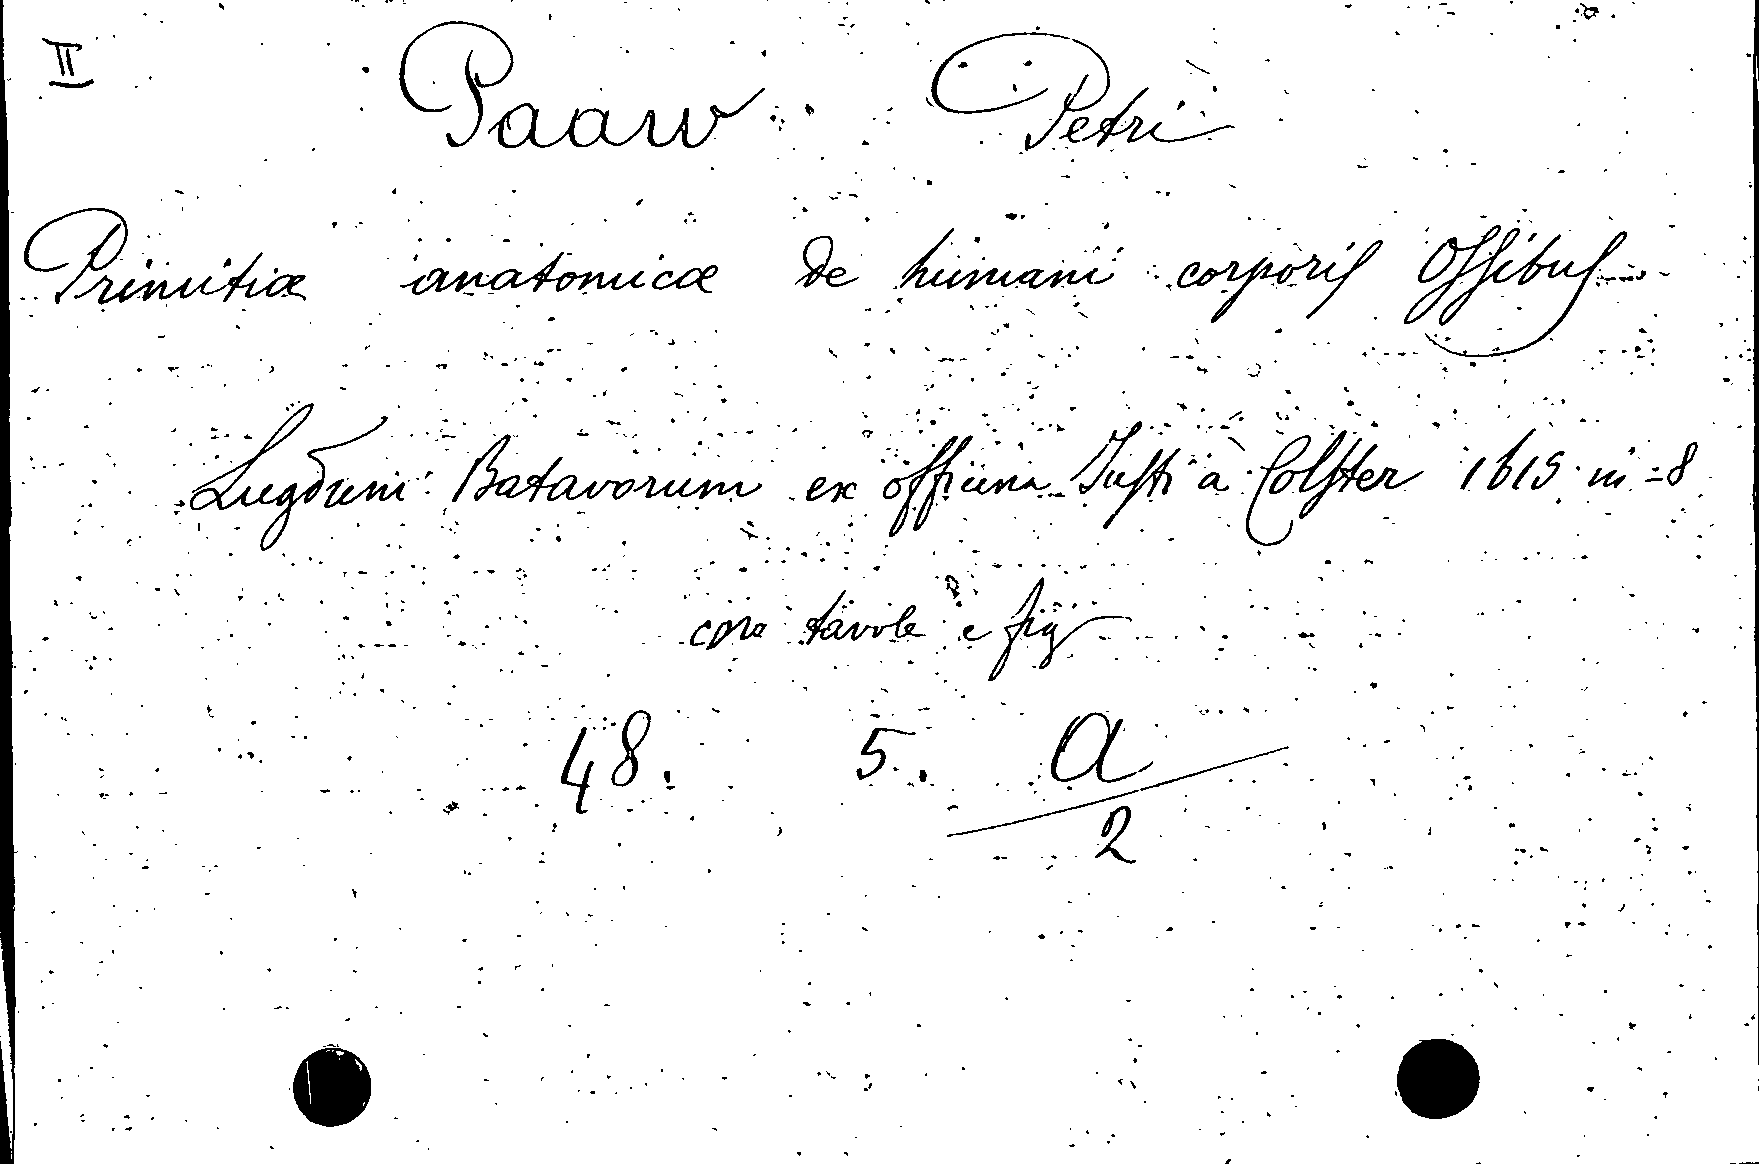 II
Paaw Petri
Primitiæ anatomicæ de humani corporis Ossibus
Lugduni Batavorum ex officina Justi à Colster 1615 in-8
con tavole e fig
48. 5. a
2